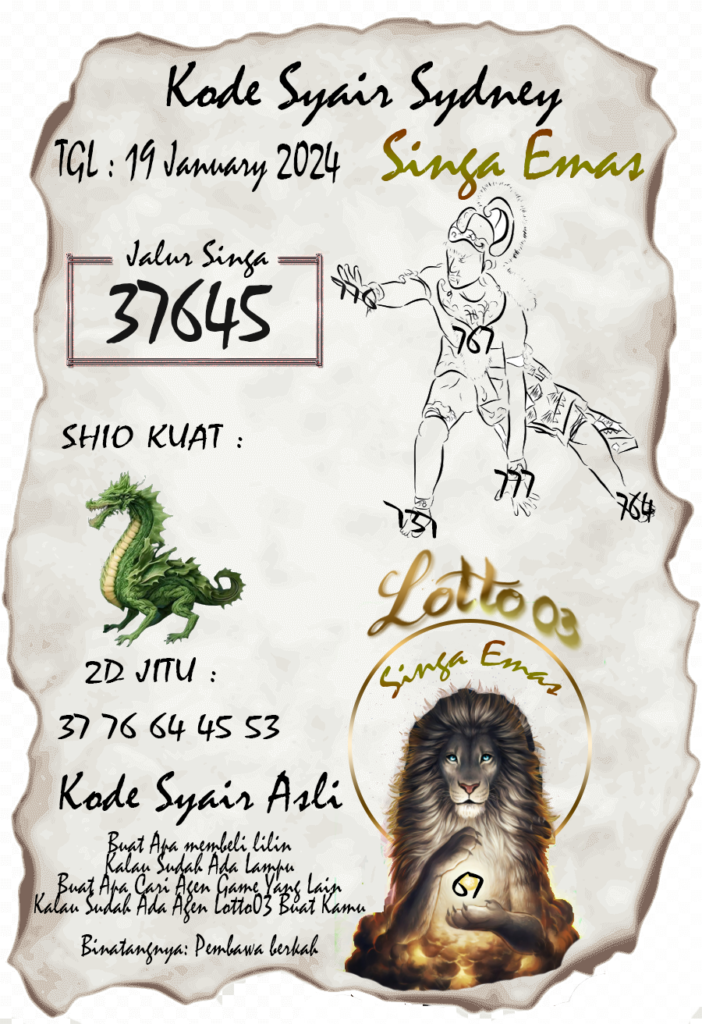 Kode Syair Sydney
TGL : 19 January 2024
Singa Emas
Jalur Singa
37645
776
767
777
737
764
SHIO KUAT :
Lotto 03
Singa Emas
2D JITU :
37 76 64 45 53
67
Kode Syair Asli
Buat Apa membeli lilin
Kalau Sudah Ada Lampu
Buat Apa Cari Agen Game Yang Lain
Kalau Sudah Ada Agen Lotto03 Buat Kamu
Binatangnya: Pembawa berkah